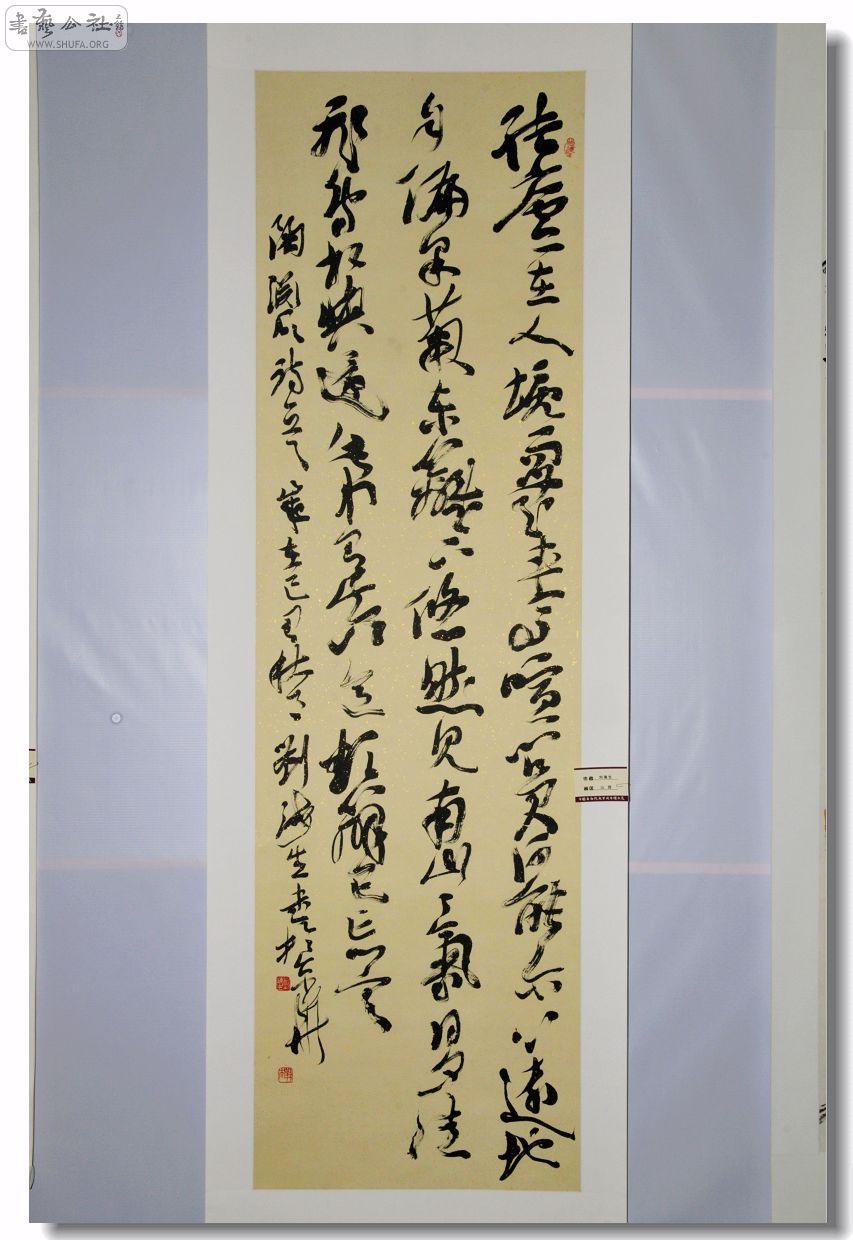 書藝公社
WWW.SHUFA.ORG
结廬在人境而無車馬喧问君何能尔心遠地
自偏采菊东籬下悠然見南山山氣日夕佳
飛鳥相與還此中有真意欲辯已忘言
陶渊明诗一首 歲在己丑秋月 劉海生書於